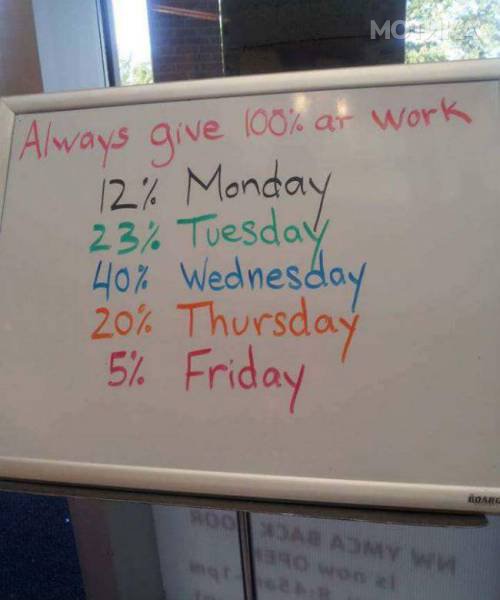 МОТИКА
Always give 100% at work
12% Monday
23% Tuesday
40% Wednesday
20% Thursday
5% Friday
NW YMCA BACK
is now OPEN